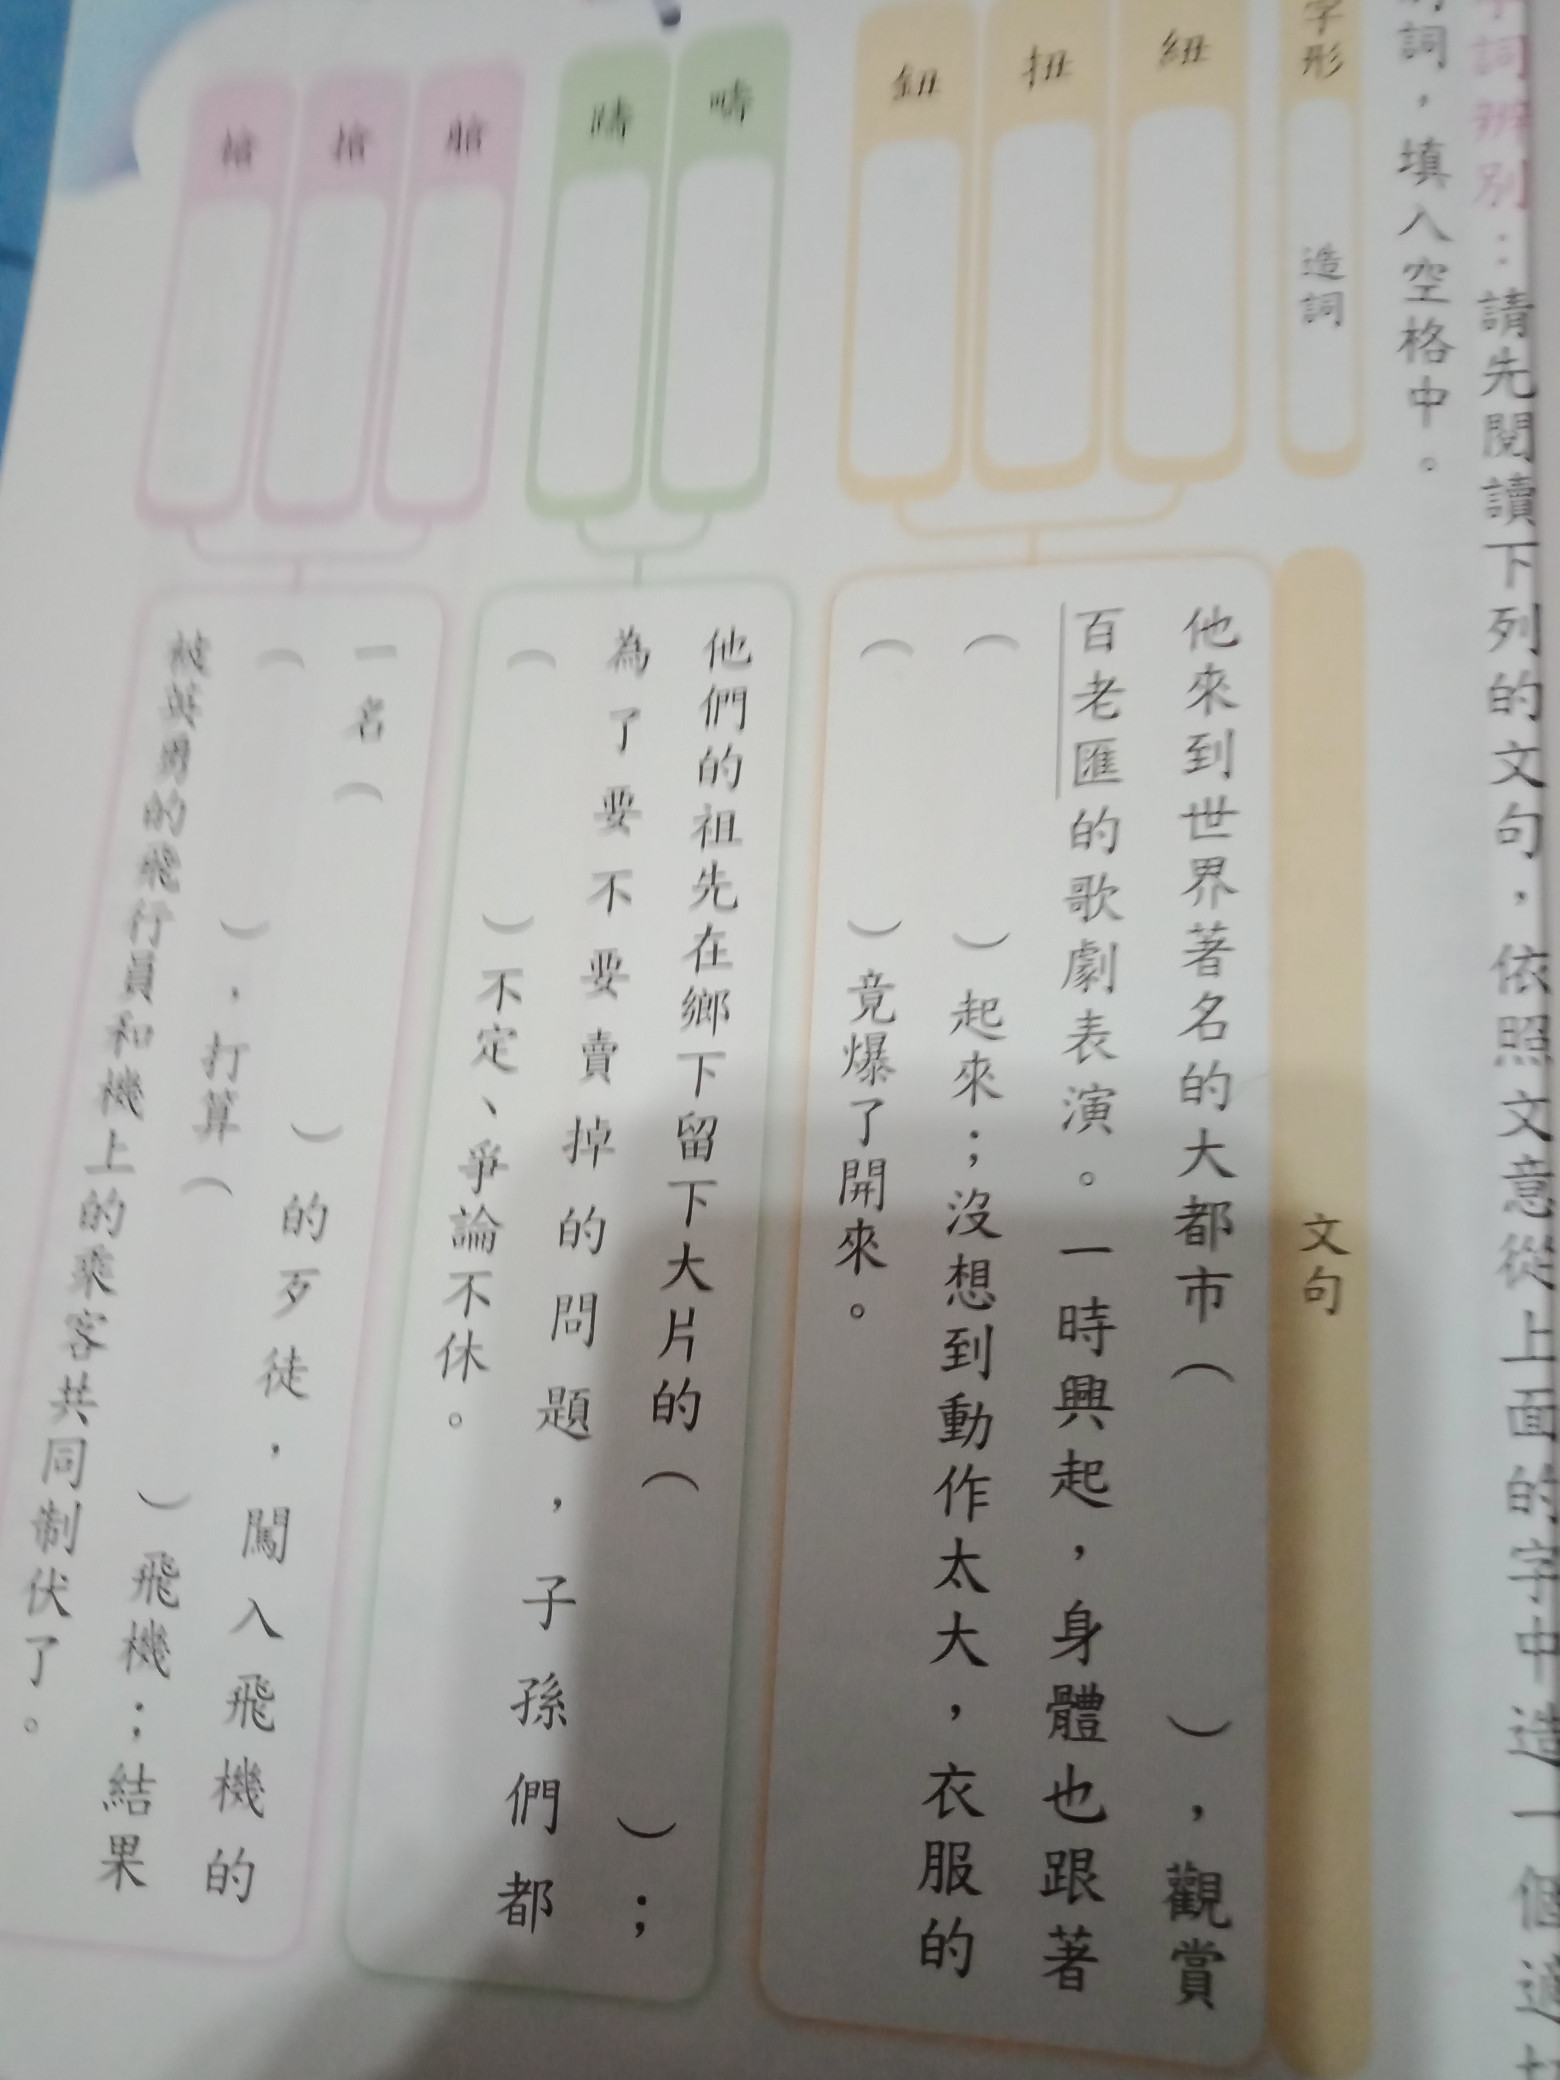 字詞辨別：請先閱讀下列的文句，依照文意從上面的字中造一個適切
的詞，填入空格中。
字形 造詞 文句
紐
扭
鈕
他來到世界著名的大都市（　　）,觀賞
百老匯的歌劇表演。一時興起，身體也跟著
（　　）起來；沒想到動作太大，衣服的
（　　）竟爆了開來。
疇
躊
他們的祖先在鄉下留下大片的（　　）；
為了要不要賣掉的問題，子孫們都
（　　）不定、爭論不休。
艙
搶
槍
一名（　　）的歹徒，闖入飛機的
（　　），打算（　　）飛機；結果
被英勇的飛行員和機上的乘客共同制伏了。